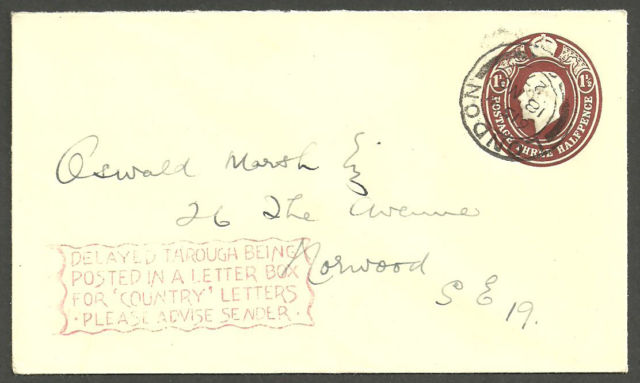 1½ᵈ 1½ᵈ
POSTAGE THREE HALFPENCE
LONDON
Oswald Marsh Esq
26 The Avenue
Norwood
S E 19.
DELAYED THROUGH BEING
POSTED IN A LETTER BOX
FOR 'COUNTRY' LETTERS
· PLEASE ADVISE SENDER ·